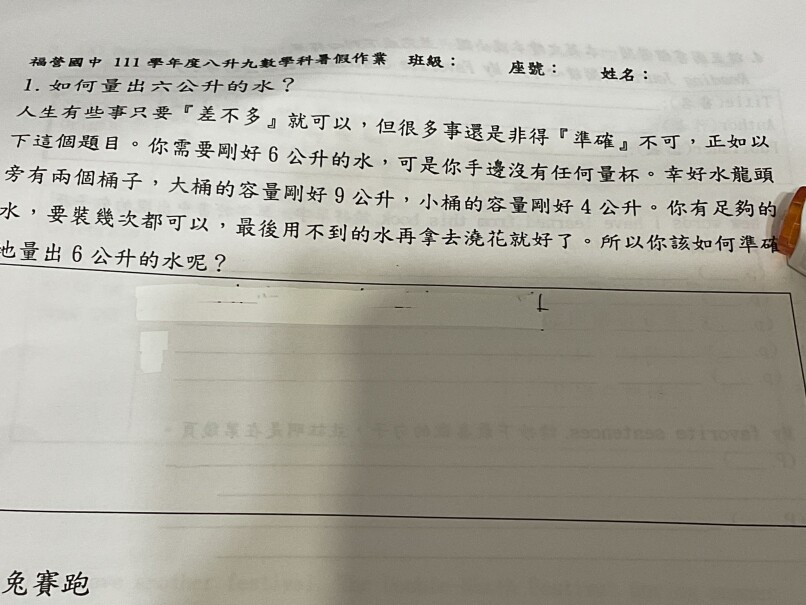 福營國中 111 學年度八升九數學科暑假作業 班級： 座號： 姓名：
1. 如何量出六公升的水？
人生有些事只要『差不多』就可以，但很多事還是非得『準確』不可，正如以
下這個題目。你需要剛好 6 公升的水，可是你手邊沒有任何量杯。幸好水龍頭
旁有兩個桶子，大桶的容量剛好 9 公升，小桶的容量剛好 4 公升。你有足夠的
水，要裝幾次都可以，最後用不到的水再拿去澆花就好了。所以你該如何準確
地量出 6 公升的水呢？
兔賽跑